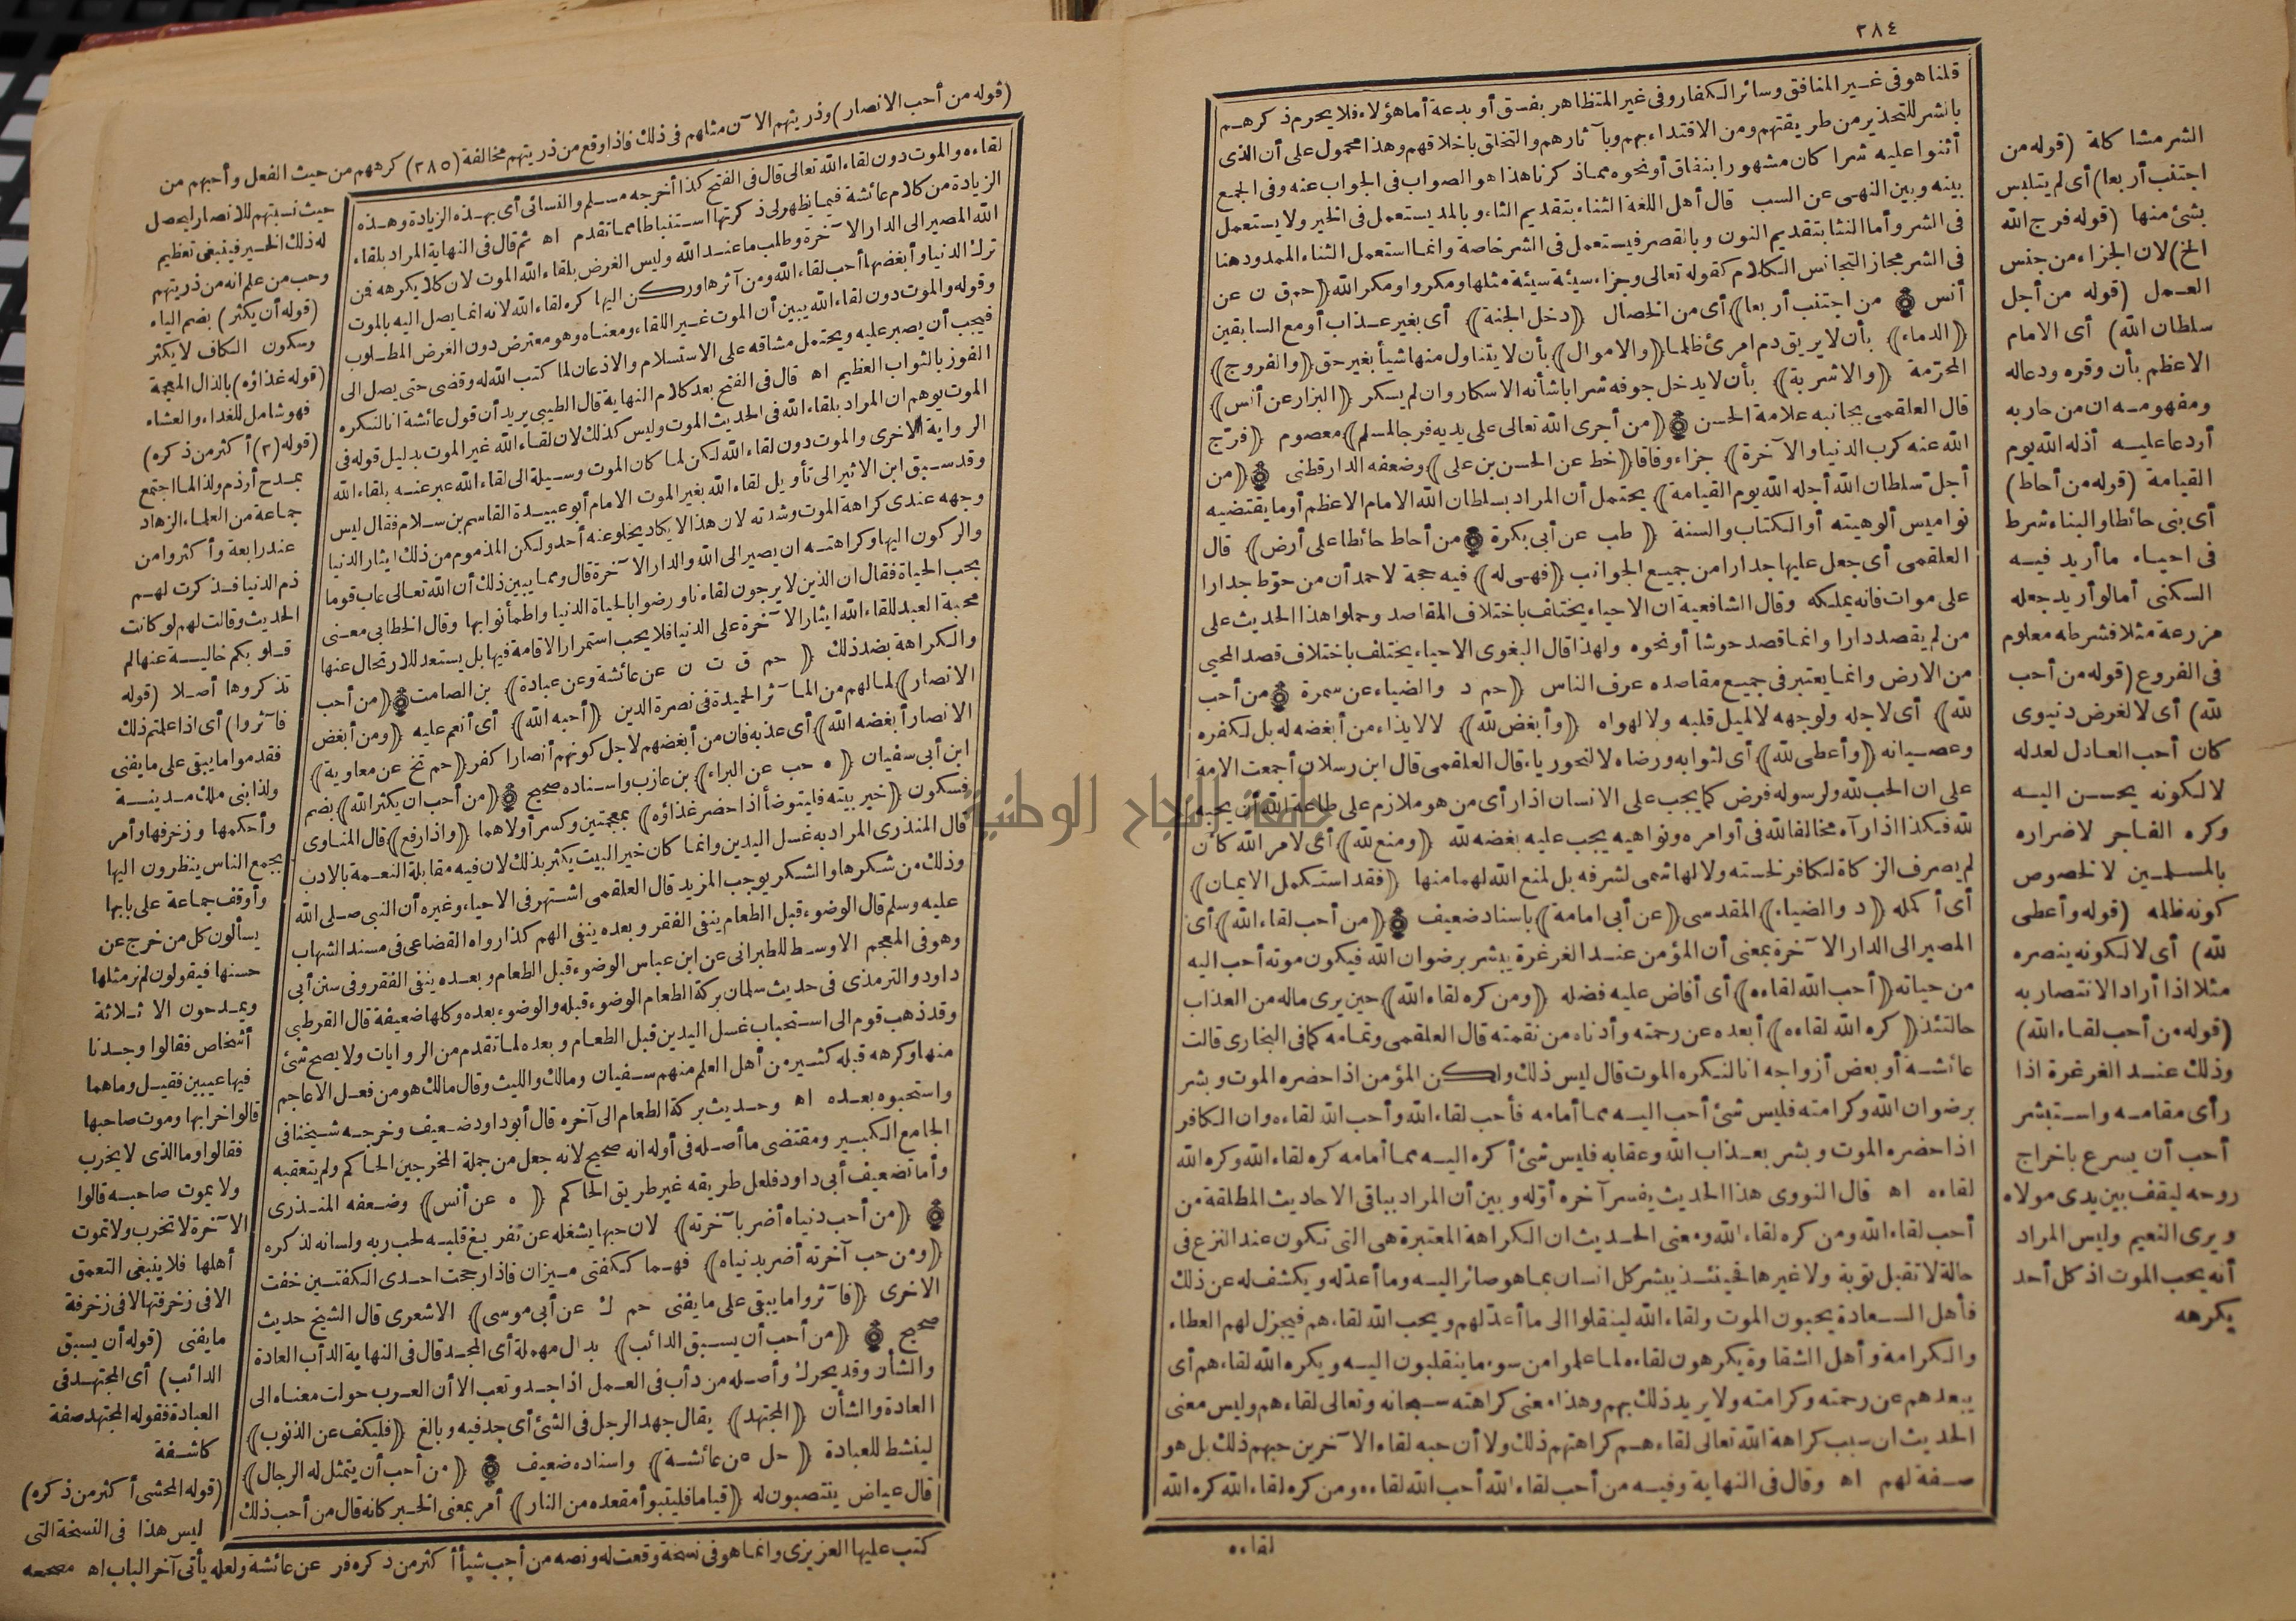 ٣٨٤
قلنا هو فى غير المنافق وسائر الكفار وفى غير المتظاهر بفسق أو بدعة أما هؤلاء فلا يحرم ذكرهم
بالشر للتحذير من طريقتهم ومن الاقتداء بهم وبآثارهم والتخلق باخلاقهم وهذا محمول على أن الذى
أثنوا عليه شرا كان مشهورا بنفاق أو نحوه مما ذكرنا هذا هو الصواب فى الجواب عنه وفى الجمع
بينه وبين النهى عن السب قال أهل اللغة الثناء بتقديم الثاء وبالمد يستعمل فى الخير ولا يستعمل
فى الشر وأما النثا بتقديم النون وبالقصر فيستعمل فى الشر خاصة وانما استعمل الثناء الممدود هنا
فى الشر مجاز التجانس الكلام كقوله تعالى وجزاء سيئة سيئة مثلها ومكروا ومكر الله ﴿حم ق ن عن
أنس ﴾ ﴿من اجتنب أربعا﴾ أى من الخصال ﴿دخل الجنة﴾ أى بغير عذاب أو مع السابقين
﴿الدماء﴾ بأن لا يريق دم امرئ ظلما ﴿والاموال﴾ بأن لا يتناول منها شيأ بغير حق ﴿والفروج﴾
المحرّمة ﴿والاشربة﴾ بأن لا يدخل جوفه شرابا شأنه الاسكار وان لم يسكر ﴿البزار عن أنس﴾
قال العلقمى بجانبه علامة الحسن ﴿من أجرى الله تعالى على يديه فرجا لمسلم﴾ معصوم ﴿فرّج
الله عنه كرب الدنيا والآخرة﴾ جزاء وفاقا ﴿خط عن الحسن بن على﴾ وضعفه الدارقطنى ﴿من
أجلّ سلطان الله أجله الله يوم القيامة﴾ يحتمل أن المراد بسلطان الله الامام الاعظم أو ما يقتضيه
نواميس ألوهيته أو الكتاب والسنة ﴿طب عن أبى بكرة ﴾ ﴿من أحاط حائطا على أرض﴾ قال
العلقمى أى جعل عليها جدارا من جميع الجوانب ﴿فهى له﴾ فيه حجة لاحمد أن من حوّط جدارا
على موات فانه يملكه وقال الشافعية ان الاحياء يختلف باختلاف المقاصد وحملوا هذا الحديث على
من لم يقصد دارا وانما قصد حوشا أو نحوه ولهذا قال البغوى الاحياء يختلف باختلاف قصد المحيى
من الارض وانما يعتبر فى جميع مقاصده عرف الناس ﴿حم د والضياء عن سمرة ﴾ ﴿من أحب
لله﴾ أى لاجله ولوجهه لا لميل قلبه ولا لهواه ﴿وأبغض لله﴾ لا لايذاء من أبغضه له بل لكفره
وعصيانه ﴿وأعطى لله﴾ أى لثوابه ورضاه لا لنحو رياء قال العلقمى قال ابن رسلان أجمعت الامة
على ان الحب لله ولرسوله فرض كما يجب على الانسان اذا رأى من هو ملازم على طاعة الله أن يحبه
لله فكذا اذا رآه مخالفا لله فى أوامره ونواهيه يجب عليه بغضه لله ﴿ومنع لله﴾ أى لامر الله كأن
لم يصرف الزكاة لكافر لخسته ولا لهاشمى لشرفه بل لمنع الله لهما منها ﴿فقد استكمل الايمان﴾
أى أكمله ﴿د والضياء﴾ المقدسى ﴿عن أبى امامة﴾ باسناد ضعيف ﴿من أحب لقاء الله﴾ أى
المصير الى الدار الآخرة بمعنى أن المؤمن عند الغرغرة يبشر برضوان الله فيكون موته أحب اليه
من حياته ﴿أحب الله لقاءه﴾ أى أفاض عليه فضله ﴿ومن كره لقاء الله﴾ حين يرى ماله من العذاب
حالتئذ ﴿كره الله لقاءه﴾ أبعده عن رحمته وأدناه من نقمته قال العلقمى وتمامه كما فى البخارى قالت
عائشة أو بعض أزواجه انا لنكره الموت قال ليس ذلك ولكن المؤمن اذا حضره الموت وبشر
برضوان الله وكرامته فليس شئ أحب اليه مما أمامه فأحب لقاء الله وأحب الله لقاءه وان الكافر
اذا حضره الموت وبشر بعذاب الله وعقابه فليس شئ أكره اليه مما أمامه كره لقاء الله وكره الله
لقاءه اه قال النووى هذا الحديث يفسر آخره أوّله وبين أن المراد بباقى الاحاديث المطلقة من
أحب لقاء الله ومن كره لقاء الله ومعنى الحديث ان الكراهة المعتبرة هى التى تكون عند النزع فى
حالة لا تقبل توبة ولا غيرها فحينئذ يبشر كل انسان بما هو صائر اليه وما أعدّ له ويكشف له عن ذلك
فأهل السعادة يحبون الموت ولقاء الله لينقلوا الى ما أعدّ لهم ويحب الله لقاءهم فيجزل لهم العطاء
والكرامة وأهل الشقاوة يكرهون لقاءه لما علموا من سوء ما ينقلبون اليه ويكره الله لقاءهم أى
يبعدهم عن رحمته وكرامته ولا يريد ذلك بهم وهذا معنى كراهته سبحانه وتعالى لقاءهم وليس معنى
الحديث ان سبب كراهة الله تعالى لقاءهم كراهتهم ذلك ولا أن حبه لقاء الآخرين حبهم ذلك بل هو
صفة لهم اه وقال فى النهاية وفيه من أحب لقاء الله أحب الله لقاءه ومن كره لقاء الله كره الله
لقاءه
الشر مشاكلة (قوله من
اجتنب أربعا) أى لم يتلبس
بشئ منها (قوله فرج الله
الخ) لان الجزاء من جنس
العمل (قوله من أجل
سلطان الله) أى الامام
الاعظم بأن وقره ودعاله
ومفهومه ان من حاربه
أودعا عليه أذله الله يوم
القيامة (قوله من أحاط)
أى بنى حائطا والبناء شرط
فى احياء ما أريد فيه
السكنى أما لو أريد جعله
مزرعة مثلا فشرطه معلوم
فى الفروع (قوله من أحب
لله) أى لا لغرض دنيوى
كان أحب العادل لعدله
لا لكونه يحسن اليه
وكره الفاجر لاضراره
بالمسلمين لا لخصوص
كونه ظالمه (قوله وأعطى
لله) أى لا لكونه ينصره
مثلا اذا أراد الانتصار به
(قوله من أحب لقاء الله)
وذلك عند الغرغرة اذا
رأى مقامه واستبشر
أحب أن يسرع باخراج
روحه ليقف بين يدى مولاه
ويرى النعيم وليس المراد
أنه يحب الموت اذ كل أحد
يكرهه
(قوله من أحب الانصار) وذريتهم الآن مثلهم فى ذلك فاذا وقع من ذريتهم مخالفة (٣٨٥) كرههم من حيث الفعل وأحبهم من
لقاءه والموت دون لقاء الله تعالى قال فى الفتح كذا أخرجه مسلم والنسائى أى بهذه الزيادة وهذه
الزيادة من كلام عائشة فيما يظهر لى ذكرتها استنباطا مما تقدم اه ثم قال فى النهاية المراد بلقاء
الله المصير الى الدار الآخرة وطلب ما عند الله وليس الغرض بلقاء الله الموت لان كلا يكرهه فمن
ترك الدنيا وأبغضها أحب لقاء الله ومن آثرها وركن اليها كره لقاء الله لانه انما يصل اليه بالموت
وقوله والموت دون لقاء الله يبين أن الموت غير اللقاء ومعناه وهو معترض دون الغرض المطلوب
فيجب أن يصبر عليه ويحتمل مشاقه على الاستسلام والاذعان لما كتب الله له وقضى حتى يصل الى
الفوز بالثواب العظيم اه قال فى الفتح بعد كلام النهاية قال الطيبى يريد أن قول عائشة انا لنكره
الموت يوهم ان المراد بلقاء الله فى الحديث الموت وليس كذلك لان لقاء الله غير الموت بدليل قوله فى
الرواية الاخرى والموت دون لقاء الله لكن لما كان الموت وسيلة الى لقاء الله عبر عنه بلقاء الله
وقد سبق ابن الاثير الى تأويل لقاء الله بغير الموت الامام أبو عبيدة القاسم بن سلام فقال ليس
وجهه عندى كراهة الموت وشدته لان هذا لا يكاد يخلو عنه أحد ولكن المذموم من ذلك ايثار الدنيا
والركون اليها وكراهته ان يصير الى الله والدار الآخرة قال ومما يبين ذلك أن الله تعالى عاب قوما
بحب الحياة فقال ان الذين لا يرجون لقاءنا ورضوا بالحياة الدنيا واطمأنوا بها وقال الخطابى معنى
محبة العبد للقاء الله ايثار الآخرة على الدنيا فلا يحب استمرار الاقامة فيها بل يستعد للارتحال عنها
والكراهة بضد ذلك ﴿حم ق ت ن عن عائشة وعن عبادة﴾ بن الصامت ﴿من أحب
الانصار﴾ لما لهم من المآثر الحميدة فى نصرة الدين ﴿أحبه الله﴾ أى أنعم عليه ﴿ومن أبغض
الانصار أبغضه الله﴾ أى عذبه فان من أبغضهم لاجل كونهم أنصارا كفر ﴿حم تخ عن معاوية﴾
ابن أبى سفيان ﴿ه حب عن البراء﴾ بن عازب واسناده صحيح ﴿من أحب ان يكثر الله﴾ بضم
فسكون ﴿خير بيته فليتوضأ اذا حضر غذاؤه﴾ بمعجمتين وكسر أولاهما ﴿واذا رفع﴾ قال المناوى
قال المنذرى المراد به غسل اليدين وانما كان خير البيت يكثر بذلك لان فيه مقابلة النعمة بالادب
وذلك من شكرها والشكر يوجب المزيد قال العلقمى اشتهر فى الاحياء وغيره أن النبى صلى الله
عليه وسلم قال الوضوء قبل الطعام ينفى الفقر وبعده ينفى الهم كذا رواه القضاعى فى مسند الشهاب
وهو فى المعجم الاوسط للطبرانى عن ابن عباس الوضوء قبل الطعام وبعده ينفى الفقر وفى سنن أبى
داود والترمذى فى حديث سلمان بركة الطعام الوضوء قبله والوضوء بعده وكلها ضعيفة قال القرطبى
وقد ذهب قوم الى استحباب غسل اليدين قبل الطعام وبعده لما تقدم من الروايات ولا يصح شئ
منها وكرهه قبله كثير من أهل العلم منهم سفيان ومالك والليث وقال مالك هو من فعل الاعاجم
واستحبوه بعده اه وحديث بركة الطعام الى آخره قال أبو داود ضعيف وخرجه شيخنا فى
الجامع الكبير ومقتضى ما أصله فى أوله انه صحيح لانه جعل من جملة المخرجين الحاكم ولم يتعقبه
وأما تضعيف أبى داود فلعل طريقه غير طريق الحاكم ﴿ه عن أنس﴾ وضعفه المنذرى
﴿من أحب دنياه أضر بآخرته﴾ لان حبها يشغله عن تفريغ قلبه لحب ربه ولسانه لذكره
﴿ومن حب آخرته أضر بدنياه﴾ فهما ككفتى ميزان فاذا رجحت احدى الكفتين خفت
الاخرى ﴿فآثروا ما يبقى على ما يفنى حم ك عن أبى موسى﴾ الاشعرى قال الشيخ حديث
صحيح ﴿من أحب أن يسبق الدائب﴾ بدال مهملة أى المجد قال فى النهاية الدأب العادة
والشأن وقد يحرك وأصله من دأب فى العمل اذا جد وتعب الا أن العرب حولت معناه الى
العادة والشأن ﴿المجتهد﴾ يقال جهد الرجل فى الشئ أى جد فيه وبالغ ﴿فليكف عن الذنوب﴾
لينشط للعبادة ﴿حل عن عائشة﴾ واسناده ضعيف ﴿من أحب أن يتمثل له الرجال﴾
قال عياض ينتصبون له ﴿قياما فليتبوأ مقعده من النار﴾ أمر بمعنى الخبر كانه قال من أحب ذلك
حيث نسبتهم للانصار ليحصل
له ذلك الخير فينبغى تعظيم
وحب من علم انه من ذريتهم
(قوله أن يكثر) بضم الياء
وسكون الكاف لا يكثر
(قوله غذاؤه) بالذال المعجمة
فهو شامل للغداء والعشاء
(قوله (٢) أكثر من ذكره)
بمدح أو ذم ولذا لما اجتمع
جماعة من العلماء الزهاد
عند رابعة وأكثروا من
ذم الدنيا فذكرت لهم
الحديث وقالت لهم لو كانت
قلوبكم خالية عنها لم
تذكروها أصلا (قوله
فآثروا) أى اذا علمتم ذلك
فقدموا ما يبقى على ما يفنى
ولذا بنى ملك مدينة
وأحكمها وزخرفها وأمر
بجمع الناس ينظرون اليها
وأوقف جماعة على بابها
يسألون كل من خرج عن
حسنها فيقولون لم نر مثلها
ويمدحون الا ثلاثة
أشخاص فقالوا وجدنا
فيها عيبين فقيل وما هما
قالوا خرابها وموت صاحبها
فقالوا وما الذى لا يخرب
ولا يموت صاحبه قالوا
الآخرة لا تخرب ولا تموت
أهلها فلا ينبغى التعمق
الا فى زخرفتها لا فى زخرفة
ما يفنى (قوله أن يسبق
الدائب) أى المجتهد فى
العبادة فقوله المجتهد صفة
كاشفة
(قوله المحشى أكثر من ذكره)
ليس هذا فى النسخة التى
كتب عليها العزيزى وانما هو فى نسخة وقعت له ونصه من أحب شيأ أكثر من ذكره فر عن عائشة ولعله يأتى آخر الباب اه مصححه
جامعة النجاح الوطنية